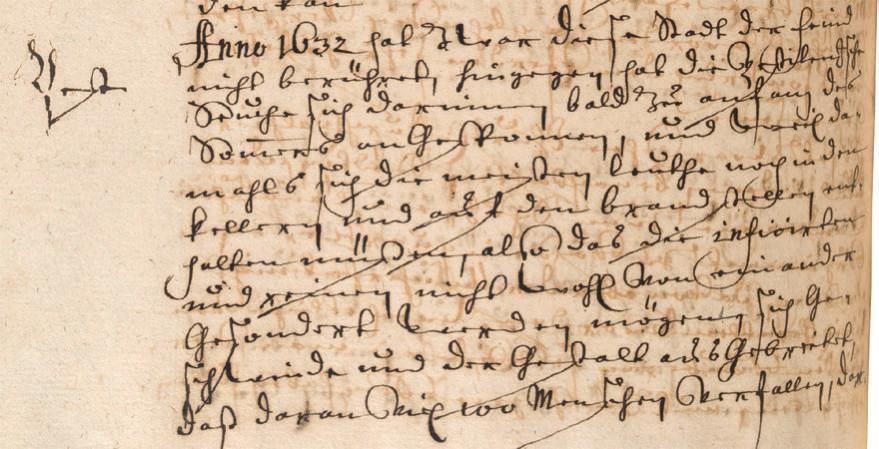 Pest
Anno 1632 hat Zwar diese Stadt der feind
nicht berühret, hingegen hat die Pestilentzische
Seuche sich darinnen bald Zu anfang des
Sommers angesponnen, und weil da-
mahls sich die meisten leuthe noch in den
kellern und auf den brandstellen ent-
halten müssen, also das die inficirten
und reinen nicht wohl von einander
gesondert werden mögen, sich ge-
schwinde und der gestalt ausgebreitet,
daß daran viel 100 Menschen verfallen,